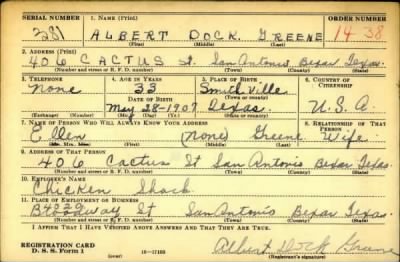 SERIAL NUMBER 1. NAME (Print) ORDER NUMBER
281 ALBERT DOCK. GREENE 1438
(First) (Middle) (Last)
2. ADDRESS (Print)
406 CACTUS St. San Antonio Bexar Texas.
(Number and street or R. F. D. number) (Town) (County) (State)
3. TELEPHONE 4. AGE IN YEARS 5. PLACE OF BIRTH 6. COUNTRY OF CITIZENSHIP
None 33 Smithville
DATE OF BIRTH (Town or county)
May 28-1907 Texas. U.S.A.
(Exchange) (Number) (Mo.) (Day) (Yr.) (State or country)
7. NAME OF PERSON WHO WILL ALWAYS KNOW YOUR ADDRESS 8. RELATIONSHIP OF THAT PERSON
Ellen (None) Greene Wife
(Mr., Mrs., Miss) (First) (Middle) (Last)
9. ADDRESS OF THAT PERSON
406 Cactus St San Antonio Bexar Texas
(Number and street or R. F. D. number) (Town) (County) (State)
10. EMPLOYER'S NAME
Chicken Shack
11. PLACE OF EMPLOYMENT OR BUSINESS
Broadway St San Antonio Bexar Texas.
(Number and street or R. F. D. number) (Town) (County) (State)
I AFFIRM THAT I HAVE VERIFIED ABOVE ANSWERS AND THAT THEY ARE TRUE.
REGISTRATION CARD
D. S. S. Form 1 (over) 16—17105 Albert Dock Greene
(Registrant's signature)